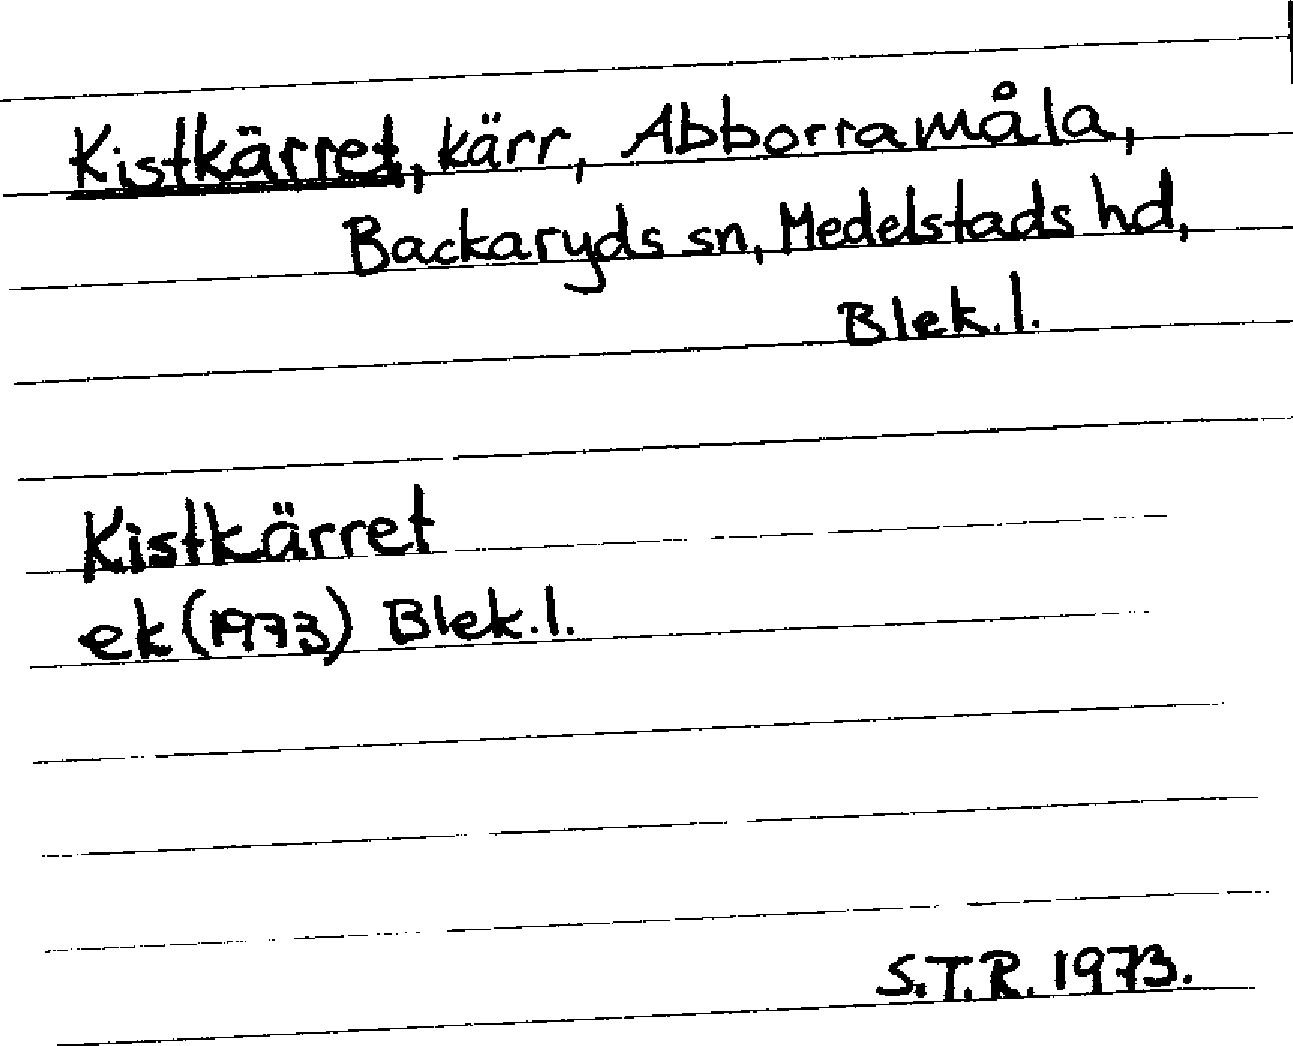 Kistkärret, kärr, Abborramåla,
Backaryds sn, Medelstads hd,
Blek.l.
Kistkärret
ek (1973) Blek.l.
S.T.R. 1973.